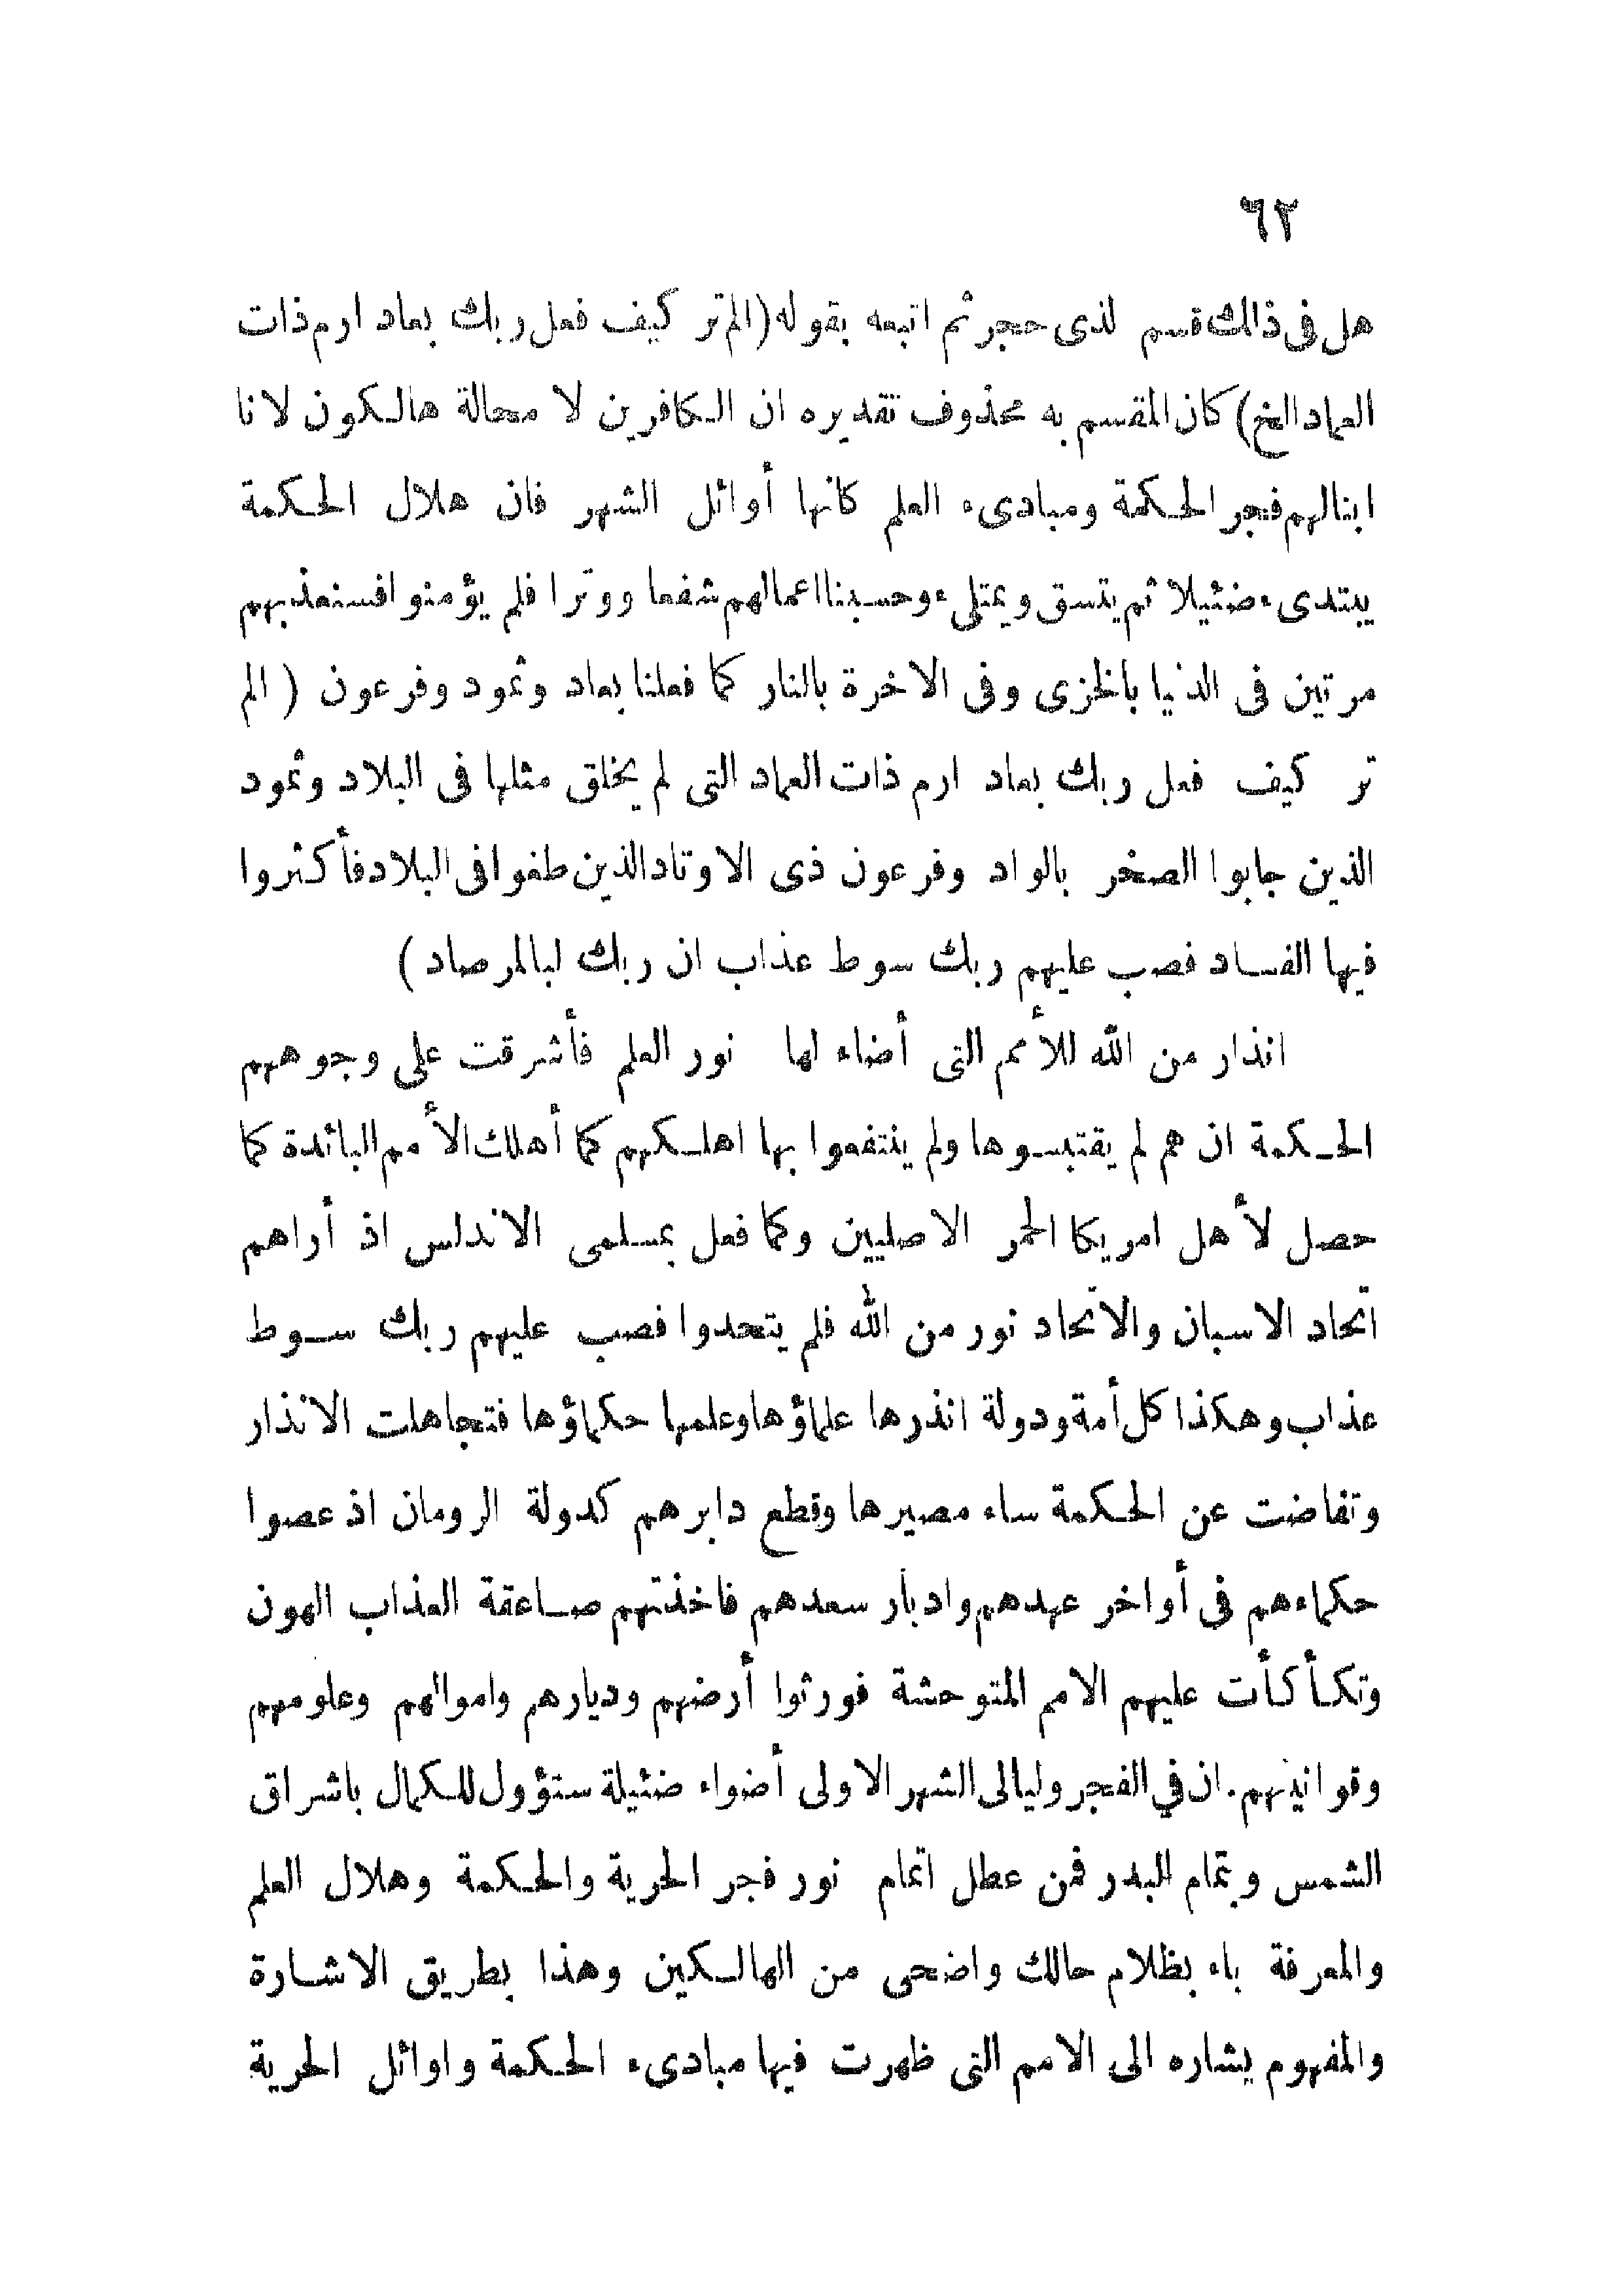 ٦٢
هل فى ذالك قسم لذى حجر ثم اتبعه بقوله (الم تر كيف فعل ربك بعاد ارم ذات
العماد الخ) كان المقسم به محذوف تقديره ان الكافرين لا محالة هالكون لانا
ابنا لهم فجر الحكمة ومبادىء العلم كانها أوائل الشهر فان هلال الحكمة
يبتدىء ضئيلا ثم يتسق ويمتلىء وحسبنا اعمالهم شفعا ووترا فلم يؤمنوا فسنعذبهم
مرتين فى الدنيا بالخزى وفى الاخرة بالنار كما فعلنا بعاد وثمود وفرعون ( الم
تر كيف فعل ربك بعاد ارم ذات العماد التى لم يخلق مثلها فى البلاد وثمود
الذين جابوا الصخر بالواد وفرعون ذى الاوتاد الذين طغوا فى البلاد فأكثروا
فيها الفساد فصب عليهم ربك سوط عذاب ان ربك لبالمرصاد )
انذار من الله للأمم التى أضاء لها نور العلم فأشرقت على وجوههم
الحكمة ان هم لم يقتبسوها ولم ينتفعوا بها اهلكهم كما أهلك الأمم البائدة كما
حصل لأهل امريكا الحمر الاصليين وكما فعل بمسلمى الاندلس اذ أراهم
اتحاد الاسبان والاتحاد نور من الله فلم يتحدوا فصب عليهم ربك سوط
عذاب وهكذا كل أمة ودولة انذرها علماؤها وعلمها حكماؤها فتجاهلت الانذار
وتغاضت عن الحكمة ساء مصيرها وقطع دابرهم كدولة الرومان اذ عصوا
حكماءهم فى أواخر عهدهم وادبار سعدهم فاخذتهم صاعقة العذاب الهون
وتكأكأت عليهم الامم المتوحشة فورثوا أرضهم وديارهم واموالهم وعلومهم
وقوانينهم. ان في الفجر وليالى الشهر الاولى أضواء ضئيلة ستؤول للكمال باشراق
الشمس وبتمام البدر فمن عطل اتمام نور فجر الحرية والحكمة وهلال العلم
والمعرفة باء بظلام حالك واضحى من الهالكين وهذا بطريق الاشارة
والمفهوم يشاره الى الامم التى ظهرت فيها مبادىء الحكمة واوائل الحرية